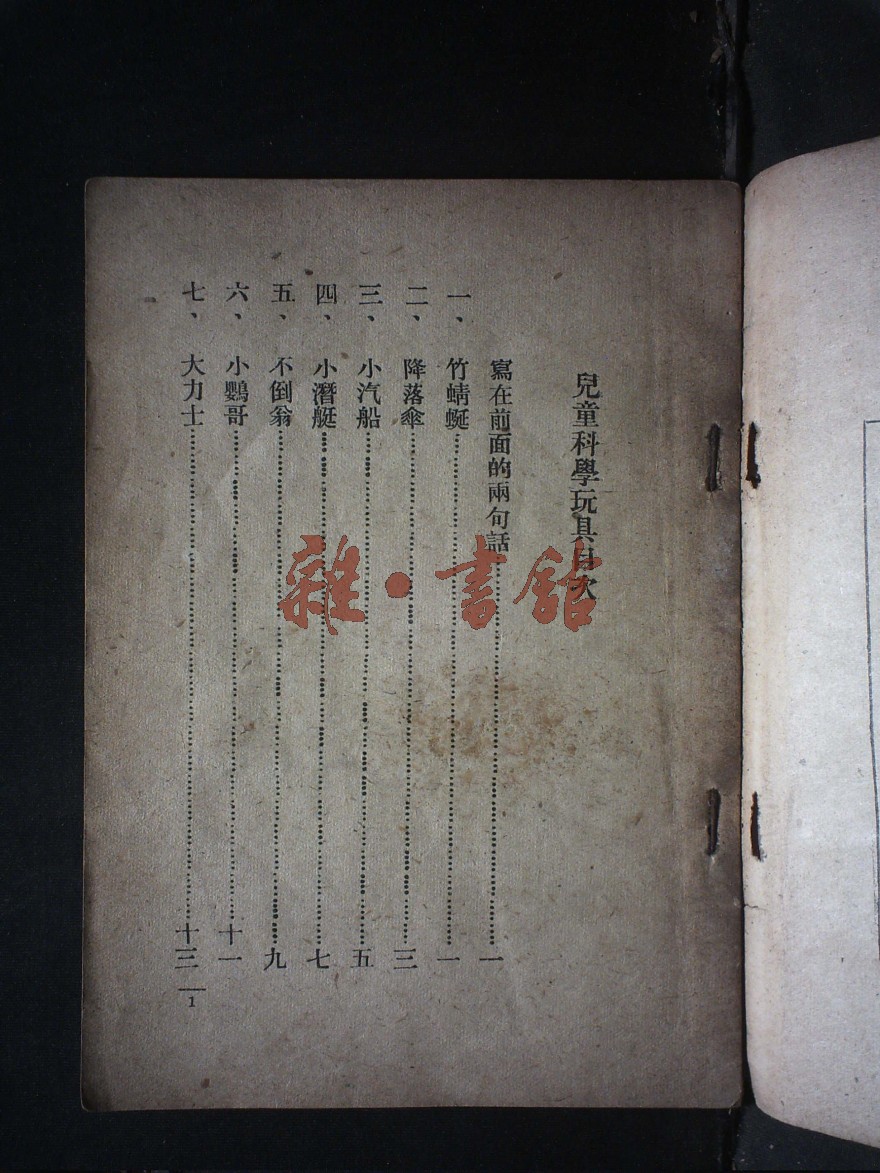 兒童科學玩具目次
寫在前面的兩句話……一
一、竹蜻蜓……一
二、降落傘……三
三、小汽船……五
四、小潛艇……七
五、不倒翁……九
六、小鸚哥……十一
七、大力士……十三
1
雜·書館